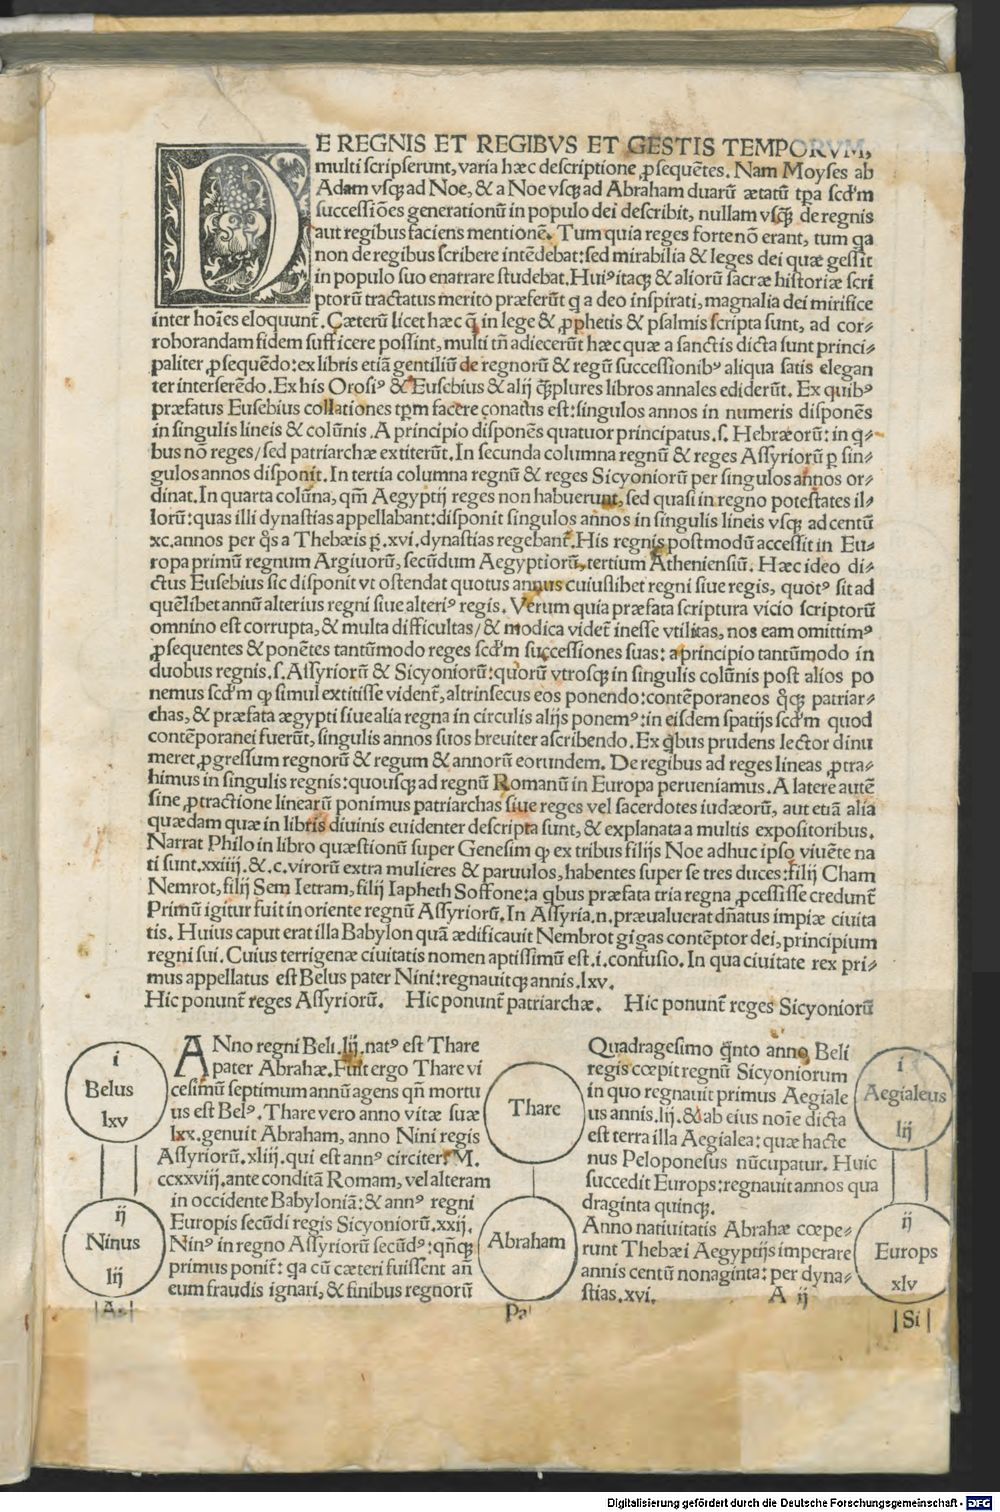 DE REGNIS ET REGIBVS ET GESTIS TEMPORVM,
multi scripserunt, varia hæc descriptione ꝓsequẽtes. Nam Moyses ab
Adam vsqꝫ ad Noe, & a Noe vsqꝫ ad Abraham duarũ ætatũ tꝑa scd'm
successiões generationũ in populo dei describit, nullam vsqꝫ̃ de regnis
aut regibus faciens mentionẽ. Tum quia reges forte nõ erant, tum qa
non de regibus scribere intẽdebat: sed mirabilia & leges dei quæ gessit
in populo suo enarrare studebat. Huiꝰ itaqꝫ & aliorũ sacræ historiæ scri
ptorũ tractatus merito præferũt̃ q a deo inspirati, magnalia dei mirifice
inter hoĩes eloquunt̃. Cæterũ licet hæc q̃ in lege & ꝓphetis & psalmis scripta sunt, ad cor⸗
roborandam fidem sufficere possint, multi tñ adiecerũt hæc quæ a sanctis dicta sunt princi⸗
paliter ꝓsequẽdo: ex libris etiã gentiliũ de regnorũ & regũ successionibꝰ aliqua satis elegan
ter interserẽdo. Ex his Orosiꝰ & Eusebius & alij qꝫ̃plures libros annales ediderũt. Ex quibꝰ
præfatus Eusebius collationes tp̃m facere conatus est: singulos annos in numeris disponẽs
in singulis lineis & colũnis. A principio disponẽs quatuor principatus .s. Hebræorũ: in q⸗
bus nõ reges/ sed patriarchæ extiterũt. In secunda columna regnũ & reges Assyriorũ ꝑ sin⸗
gulos annos disponit. In tertia columna regnũ & reges Sicyoniorũ per singulos annos or⸗
dinat. In quarta colũna, qm̃ Aegyptij reges non habuerunt, sed quasi in regno potestates il⸗
lorũ: quas illi dynastias appellabant: disponit singulos annos in singulis lineis vsqꝫ ad centũ
xc. annos per q̃s a Thebæis ꝑ .xvi. dynastias regebant̃. His regnis postmodũ accessit in Eu⸗
ropa primũ regnum Argiuorũ, secũdum Aegyptiorũ, tertium Atheniensiũ. Hæc ideo di⸗
ctus Eusebius sic disponit vt ostendat quotus annus cuiuslibet regni siue regis, quotꝰ sit ad
quẽlibet annũ alterius regni siue alteriꝰ regis. Verum quia præfata scriptura vicio scriptorũ
omnino est corrupta, & multa difficultas/ & modica videt̃ inesse vtilitas, nos eam omittimꝰ
ꝓsequentes & ponẽtes tantũmodo reges scd'm successiones suas: a principio tantũmodo in
duobus regnis .s. Assyriorũ & Sicyoniorũ: quorũ vtrosqꝫ in singulis colũnis post alios po
nemus scd'm qꝫ simul extitisse vident̃, altrinsecus eos ponendo: contẽporaneos q̃qꝫ patriar⸗
chas, & præfata ægypti siue alia regna in circulis alijs ponemꝰ: in eisdem spatijs scd'm quod
contẽporanei fuerũt, singulis annos suos breuiter ascribendo. Ex qbus prudens lector dinu
meret ꝓgressum regnorũ & regum & annorũ eorundem. De regibus ad reges lineas ꝓtra⸗
himus in singulis regnis: quousqꝫ ad regnũ Romanũ in Europa perueniamus. A latere autẽ
sine ꝓtractione linearũ ponimus patriarchas siue reges vel sacerdotes iudæorũ, aut etiã alia
quædam quæ in libris diuinis euidenter descripta sunt, & explanata a multis expositoribus.
Narrat Philo in libro quæstionũ super Genesim qꝫ ex tribus filijs Noe adhuc ipso viuẽte na
ti sunt .xxiiij. & .c. virorũ extra mulieres & paruulos, habentes super se tres duces: filij Cham
Nemrot, filij Sem Ietram, filij Iapheth Soffone: a qbus præfata tria regna ꝓcessisse credunt̃
Primũ igitur fuit in oriente regnũ Assyriorũ. In Assyria .n. præualuerat dñatus impiæ ciuita
tis. Huius caput erat illa Babylon quã ædificauit Nembrot gigas contẽptor dei, principium
regni sui. Cuius terrigenæ ciuitatis nomen aptissimũ est .i. confusio. In qua ciuitate rex pri⸗
mus appellatus est Belus pater Nini: regnauitqꝫ annis .lxv.
Hic ponunt̃ reges Assyriorũ. Hic ponunt̃ patriarchæ. Hic ponunt̃ reges Sicyoniorũ
i
Belus
lxv
ij
Ninus
lij
|As|
ANno regni Beli .lij. natꝰ est Thare
pater Abrahæ. Fuit ergo Thare vi
cesimũ septimum annũ agens qñ mortu
us est Belꝰ. Thare vero anno vitæ suæ
lxx. genuit Abraham, anno Nini regis
Assyriorũ .xliij. qui est annꝰ circiter .M.
ccxxviij. ante conditã Romam, vel alteram
in occidente Babyloniã: & annꝰ regni
Europis secũdi regis Sicyoniorũ .xxij.
Ninꝰ in regno Assyriorũ secũdꝰ: qñqꝫ
primus ponit̃: qa cũ cæteri fuissent añ
eum fraudis ignari, & finibus regnorũ
Thare
Abraham
Pa
Quadragesimo q̃nto anno Beli
regis cœpit regnũ Sicyoniorum
in quo regnauit primus Aegiale
us annis .lij. & ab eius noĩe dicta
est terra illa Aegialea: quæ hacte
nus Peloponesus nũcupatur. Huic
succedit Europs: regnauit annos qua
draginta quinqꝫ.
Anno natiuitatis Abrahæ cœpe⸗
runt Thebæi Aegyptijs imperare
annis centũ nonaginta: per dyna⸗
stias .xvi. A ij
i
Aegialeus
lij
ij
Europs
xlv
|Si|
Digitalisierung gefördert durch die Deutsche Forschungsgemeinschaft - DFG